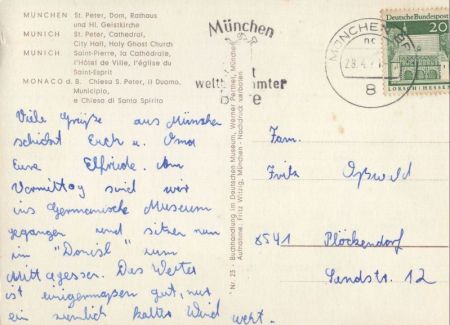 MÜNCHEN St. Peter, Dom, Rathaus
und Hl. Geistkirche
MUNICH St. Peter, Cathedral,
City Hall, Holy Ghost Church
MUNICH Saint-Pierre, la Cathédrale,
l'Hôtel de Ville, l'église du
Saint-Esprit
MONACO d. B. Chiesa S. Peter, il Duomo,
Municipio,
e Chiesa di Santo Spirito
Viele Grüße aus München
schickt Euch u. Oma
Eure Elfriede. Am
Vormittag sind wir
ins Germanische Museum
gegangen und sitzen nun
im "Donisl" zum
Mittagessen. Das Wetter
ist einigermaßen gut, nur
ein ziemlich kalter Wind weht.
Nr. 25 - Buchhandlung im Deutschen Museum, Werner Perthel, München
Aufnahme: Fritz Witzig, München - Nachdruck verboten
München
MÜNCHEN
8
Deutsche Bundespost
20
LORSCH/HESSEN
Fam.
Fritz Oßwald
8541 Plöckendorf
Sandstr. 12